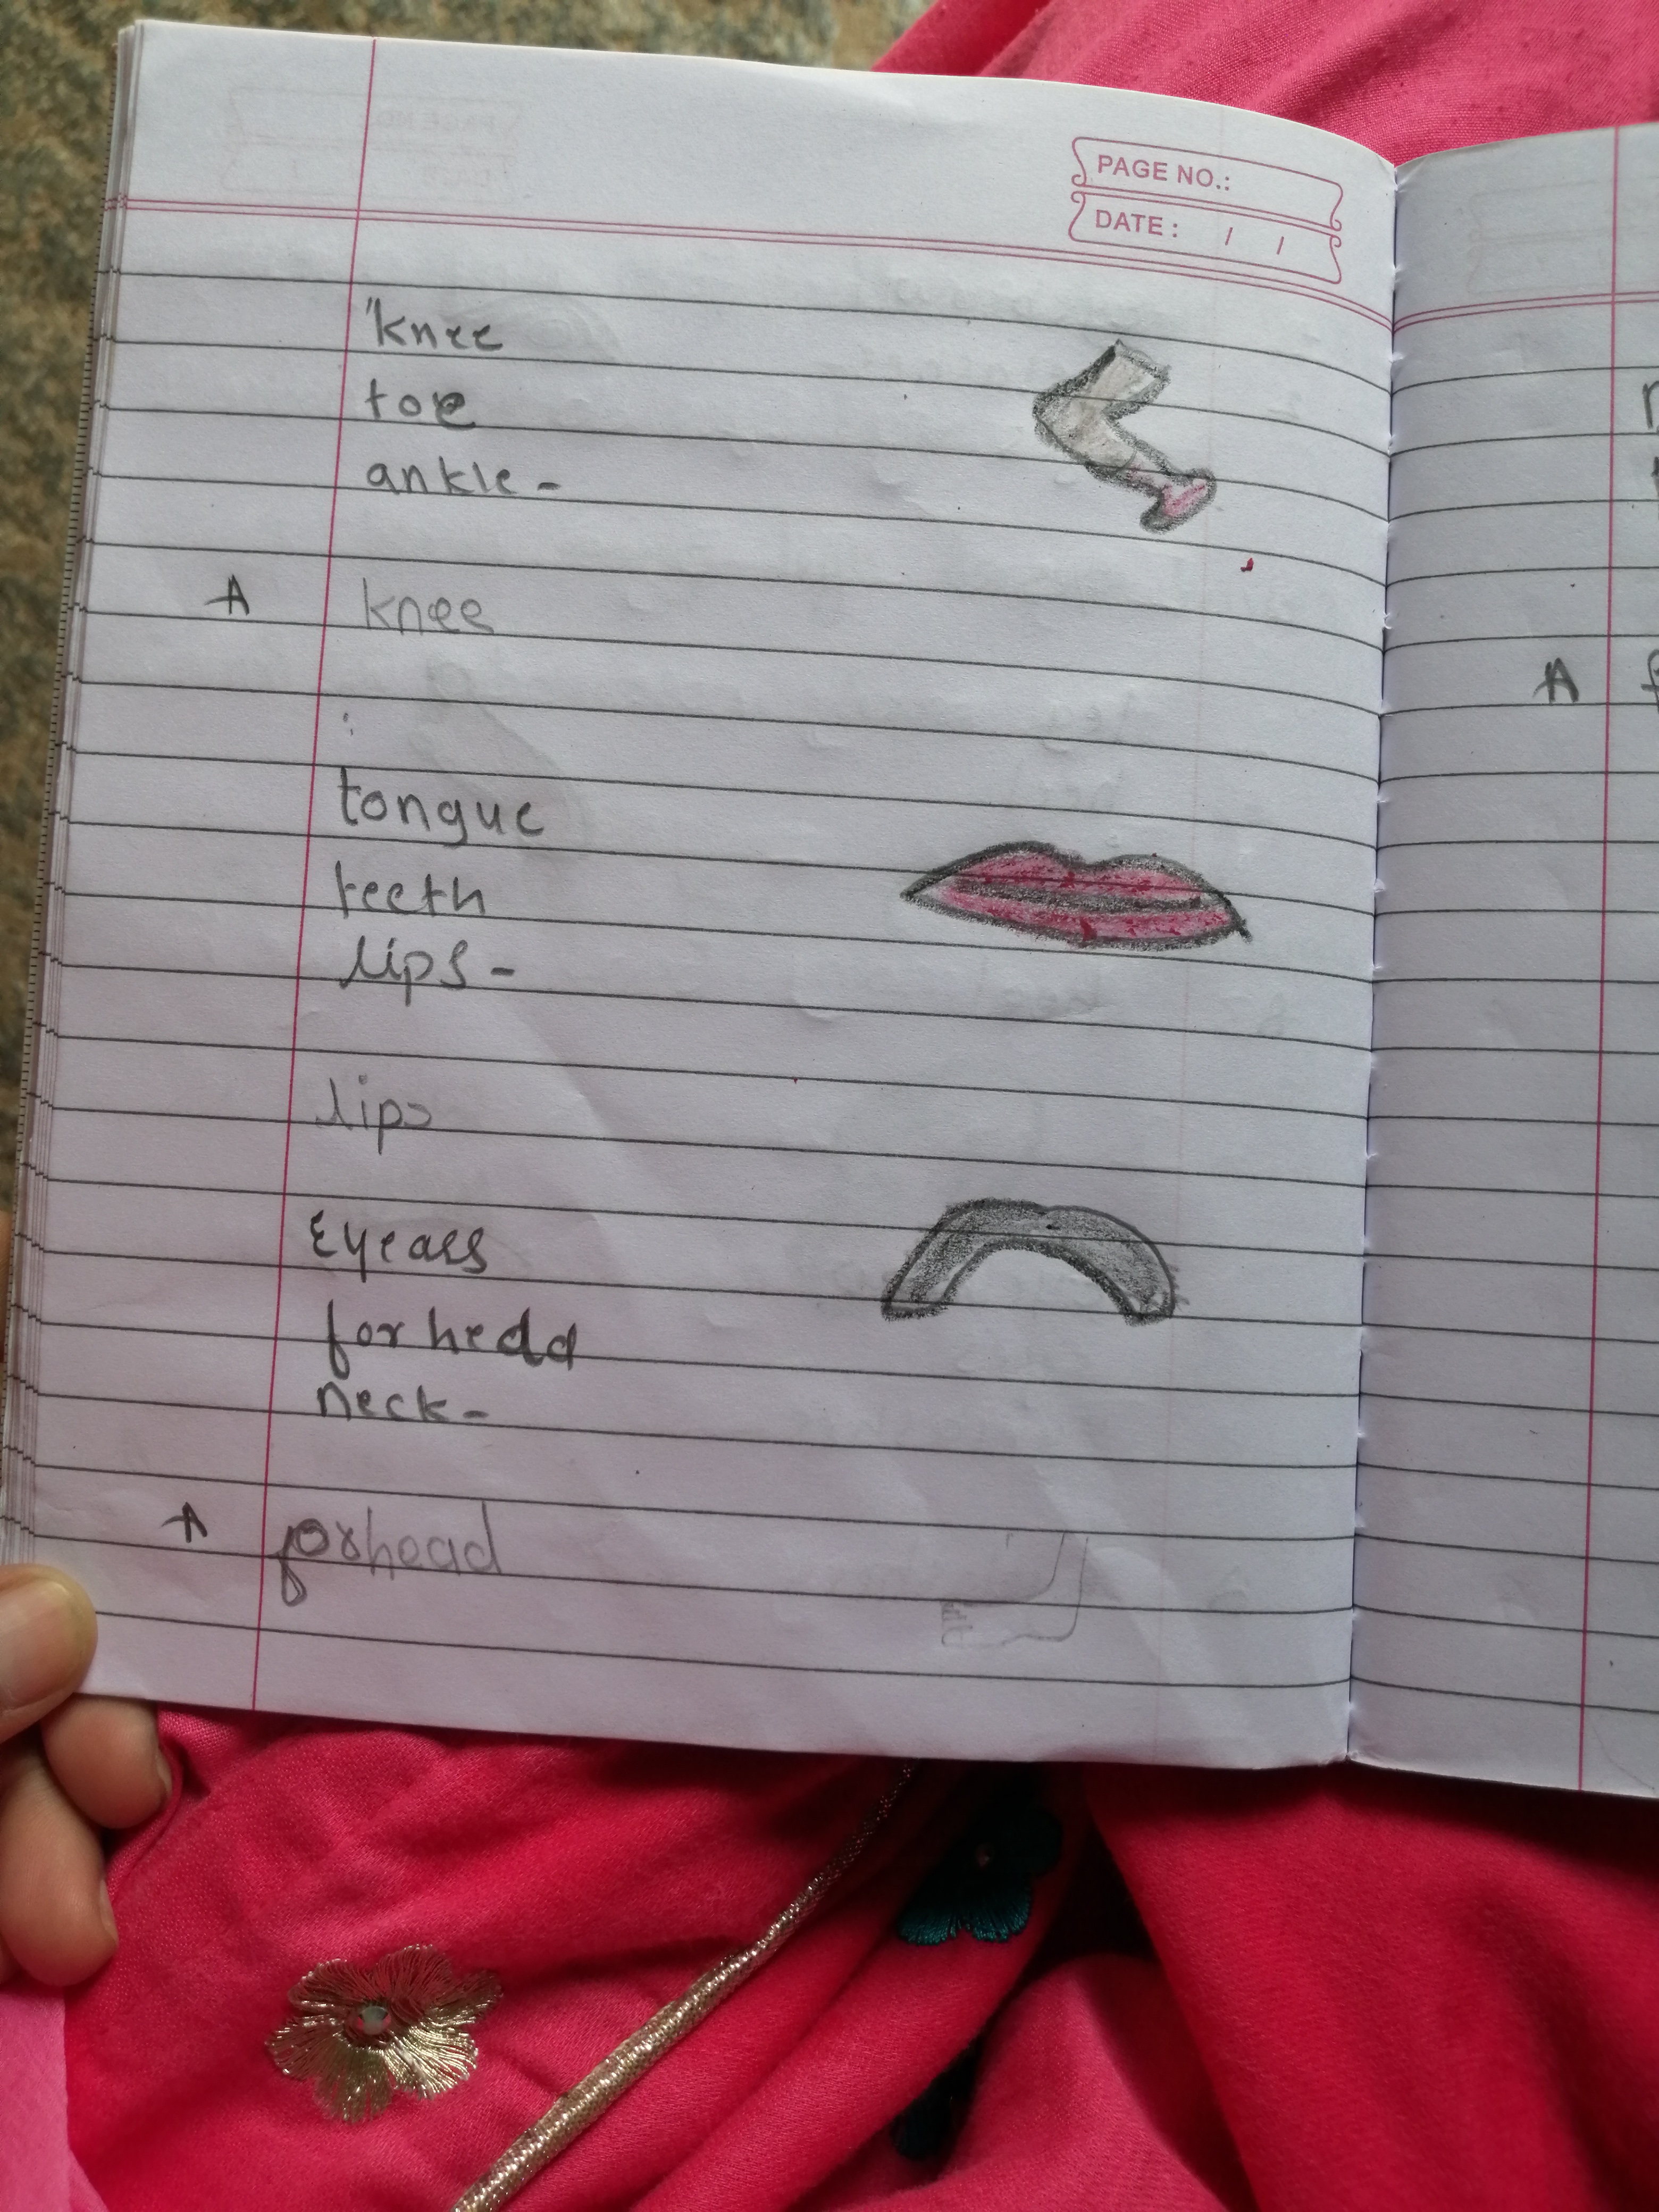 PAGE NO.:
DATE: / /
knee
toe
ankle -
A knee
tongue
teeth
lips -
lips
Eyeass
forhedd
neck -
A forhead
A